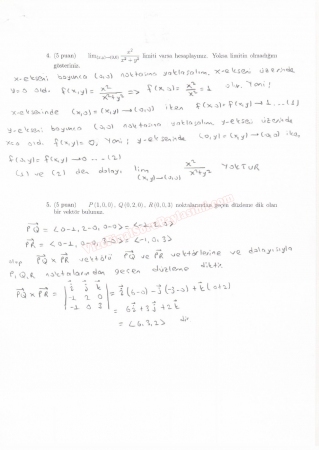 4. (5 puan) lim(x,y)→(0,0) x²/(x²+y²) limiti varsa hesaplayınız. Yoksa limitin olmadığını
gösteriniz.
x-ekseni boyunca (0,0) noktasına yaklaşalım, x-ekseni üzerinde
y=0 oldu. f(x,y) = x²/(x²+y²) => f(x,0) = x²/x² = 1 olur. Yani!
x-ekseninde (x,y)=(x,y)→(0,0) iken f(x,y)=f(x,y)→1 ...(1)
y-ekseni boyunca (0,0) noktasına yaklaşalım, y-ekseni üzerinde
x=0 oldu f(x,y)=0, Yani! y-ekseninde (0,y)=(x,y)→(0,0) iken
f(0,y)=f(x,y)→0 ... (2)
(1) ve (2) den dolayı lim (x,y)→(0,0) x²/(x²+y²) YOKTUR
5. (5 puan) P(1,0,0), Q(0,2,0), R(0,0,3) noktalarından geçen düzleme dik olan
bir vektör bulunuz.
PQ = <0-1, 2-0, 0-0> = <-1,2,0>
PR = <0-1, 0-0, 3-0> = <-1,0,3>
PQ x PR vektörü PQ ve PR vektörlerine ve dolayısıyla
P,Q,R noktalarından geçen düzleme diktir.
PQ x PR = | i j k; -1 2 0; -1 0 3 | = i(6-0) - j(-3-0) + k(0+2)
= 6i + 3j + 2k
= <6,3,2> dir